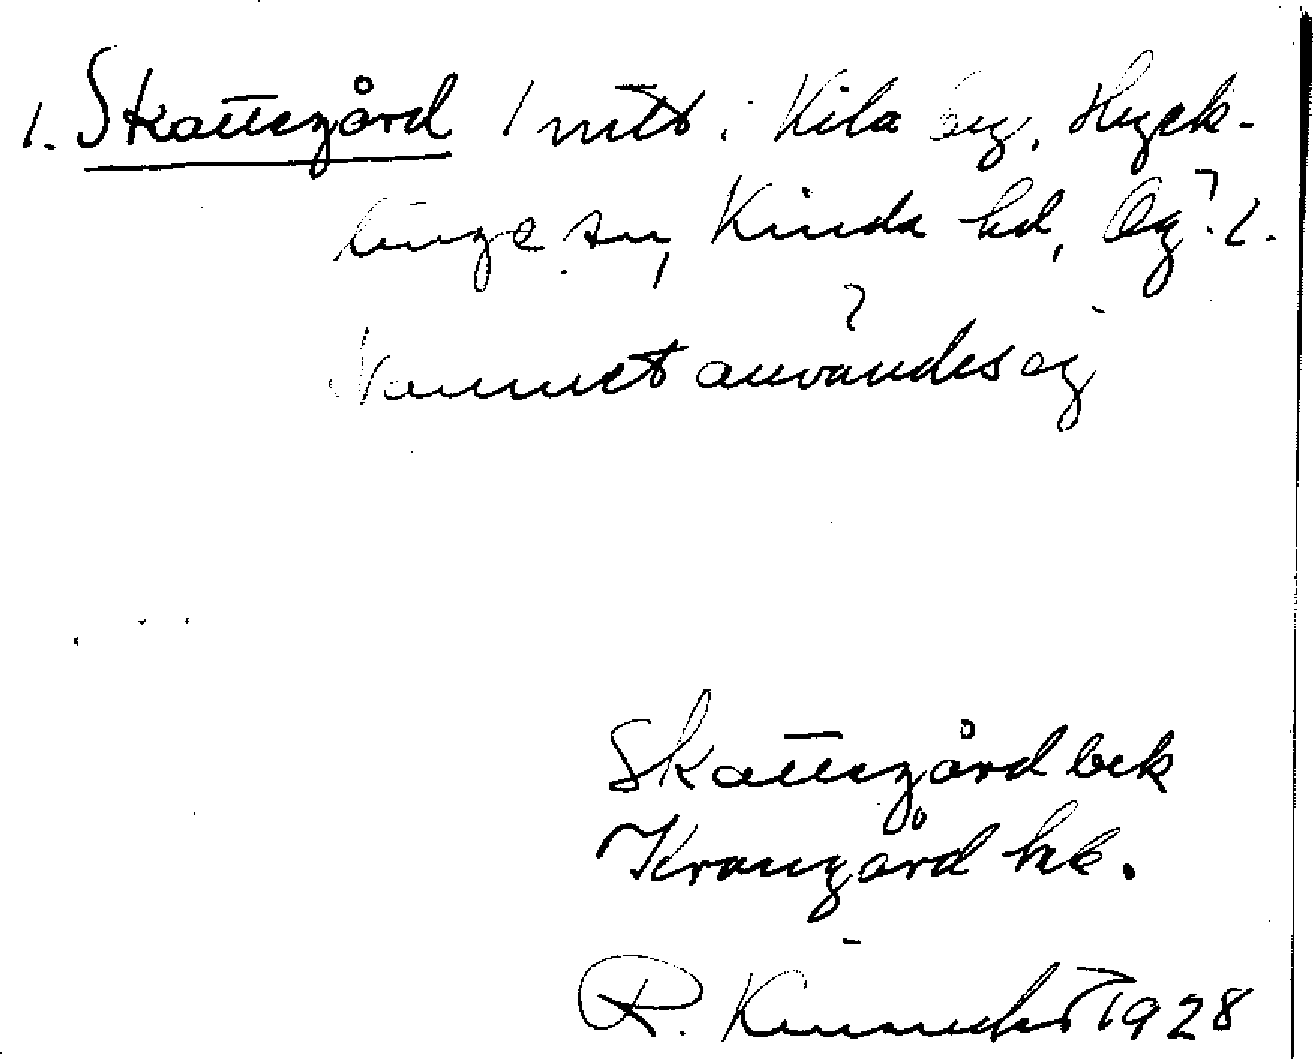 1. Skattegård 1 mtl. i Kila by, Hyck-
linge sn, Kinda hd, Ög. l.
Namnet användes ej
Skattegård bek
Krongård hk.
R. 1928